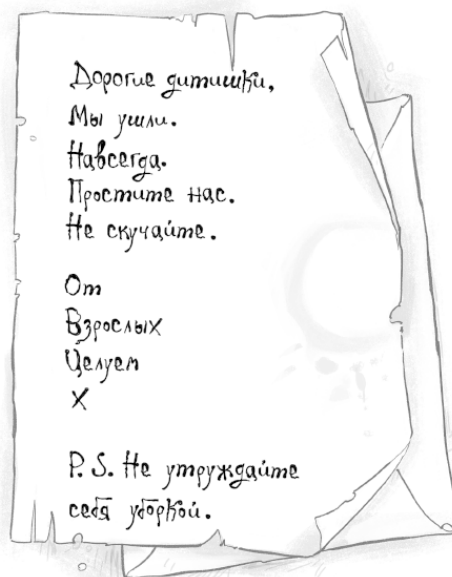 Дорогие дитишки,
Мы ушли.
Навсегда.
Простите нас.
Не скучайте.
От
Взрослых
Целуем
X
P. S. Не утруждайте
себя уборкой.